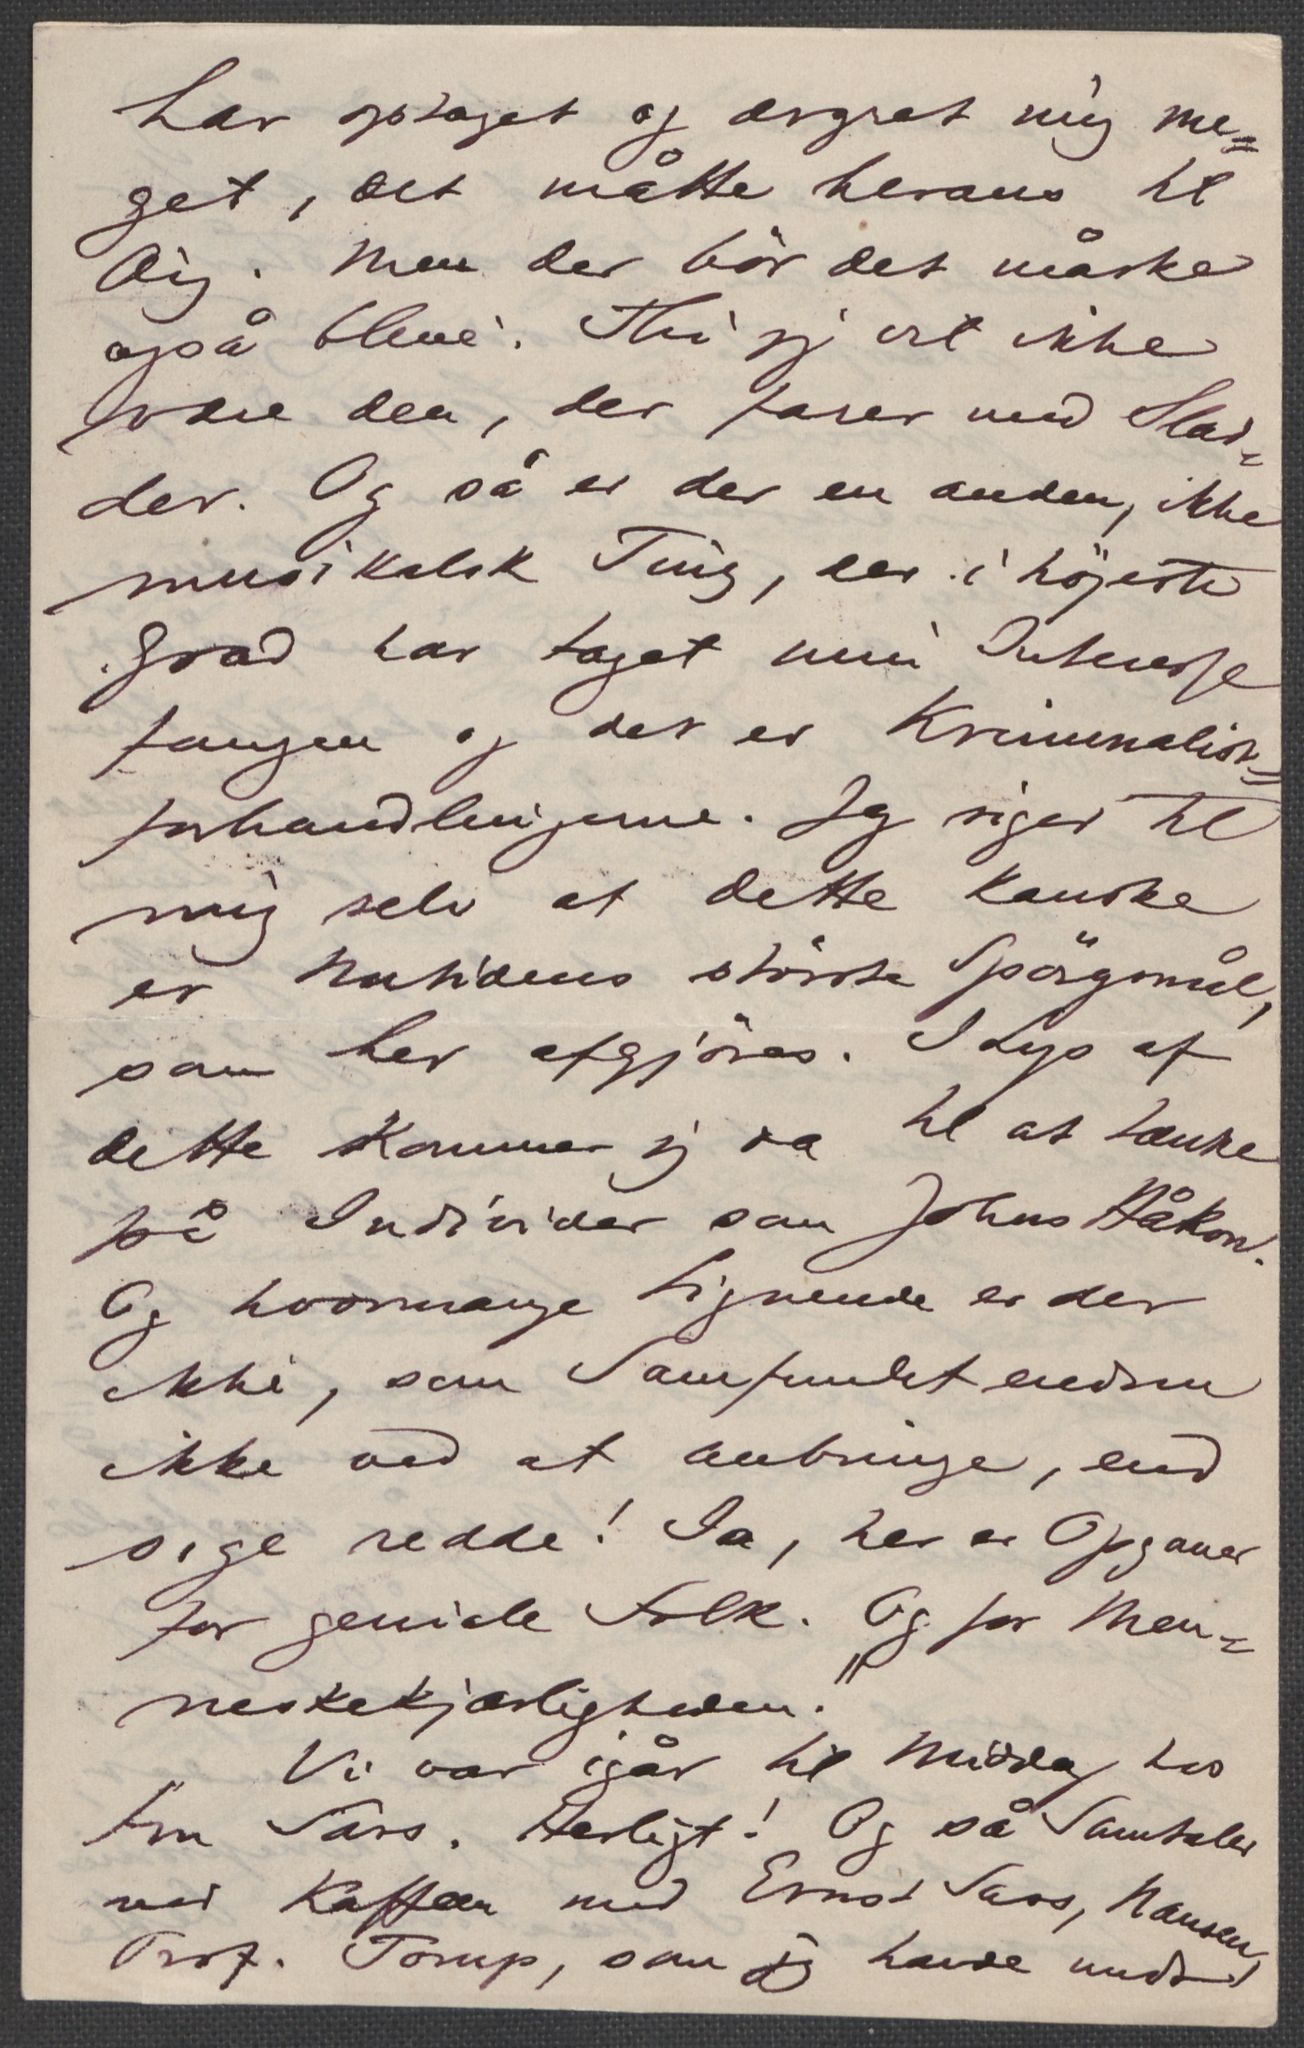 har optaget og ærgret mig me=
get, det måtte heraus til
Dig. Men der bör det måske
også blive. Thi jeg vil ikke
være den, der farer med Slad=
der. Og så er der en anden, ikke
musikalsk Ting, der i höjeste
Grad har taget min Interesse
fangen og det er Kriminalist=
forhandlingerne. Jeg siger til
mig selv at dette kanske
er Nutidens störste Spörgsmål,
som her afgjöres. I Lys af
dette kommer jeg da til at tænke
på Individer som Johns Håkon.
Og hvormange Lignende er der
ikke, som Samfundet endnu
ikke ved at anbringe, end
sige redde! Ja, her er Opgaver
for geniale Folk. Og for Men=
neskekjærligheden."
Vi var igår til Middag hos
Fru Sars. Herligt! Og så Samtaler
ved Kaffeen med Ernst Sars, Nansen,
Prof. Torup, som jeg havde undt